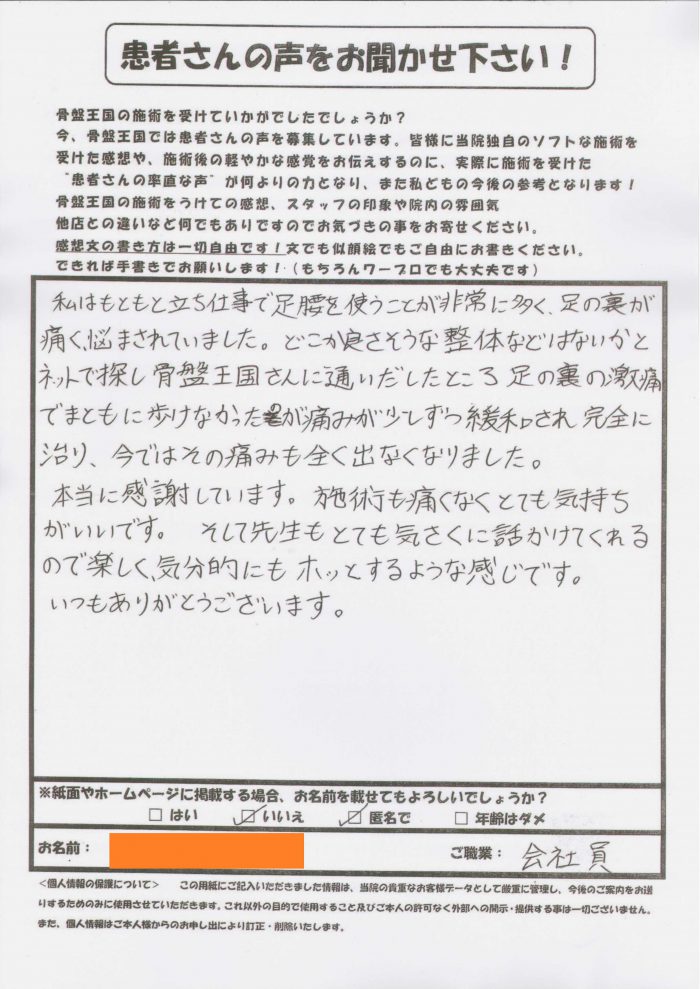 患者さんの声をお聞かせ下さい！
骨盤王国の施術を受けていかがでしたでしょうか？
今、骨盤王国では患者さんの声を募集しています。皆様に当院独自のソフトな施術を
受けた感想や、施術後の軽やかな感覚をお伝えするのに、実際に施術を受けた
"患者さんの率直な声"が何よりの力となり、また私どもの今後の参考となります！
骨盤王国の施術をうけての感想、スタッフの印象や院内の雰囲気
他店との違いなど何でもありですのでお気づきの事をお寄せください。
感想文の書き方は一切自由です！文でも似顔絵でもご自由にお書きください。
できれば手書きでお願いします！（もちろんワープロでも大丈夫です）
私はもともと立ち仕事で足腰を使うことが非常に多く、足の裏が
痛く、悩まされていました。どこか良さそうな整体などはないかと
ネットで探し骨盤王国さんに通いだしたところ足の裏の激痛
でまともに歩けなかったのが痛みが少しずつ緩和され完全に
治り、今ではその痛みも全く出なくなりました。
本当に感謝しています。施術も痛くなくとても気持ち
がいいです。そして先生もとても気さくに話かけてくれる
ので楽しく、気分的にもホッとするような感じです。
いつもありがとうございます。
※紙面やホームページに掲載する場合、お名前を載せてもよろしいでしょうか？
□ はい ☑ いいえ ☑ 匿名で □ 年齢はダメ
お名前： ご職業： 会社員
＜個人情報の保護について＞ この用紙にご記入いただきました情報は、当院の貴重なお客様データとして厳重に管理し、今後のご案内をお送
りするためのみに使用させていただきます。これ以外の目的で使用すること及びご本人の許可なく外部への開示・提供する事は一切ございません。
また、個人情報はご本人様からのお申し出により訂正・削除いたします。